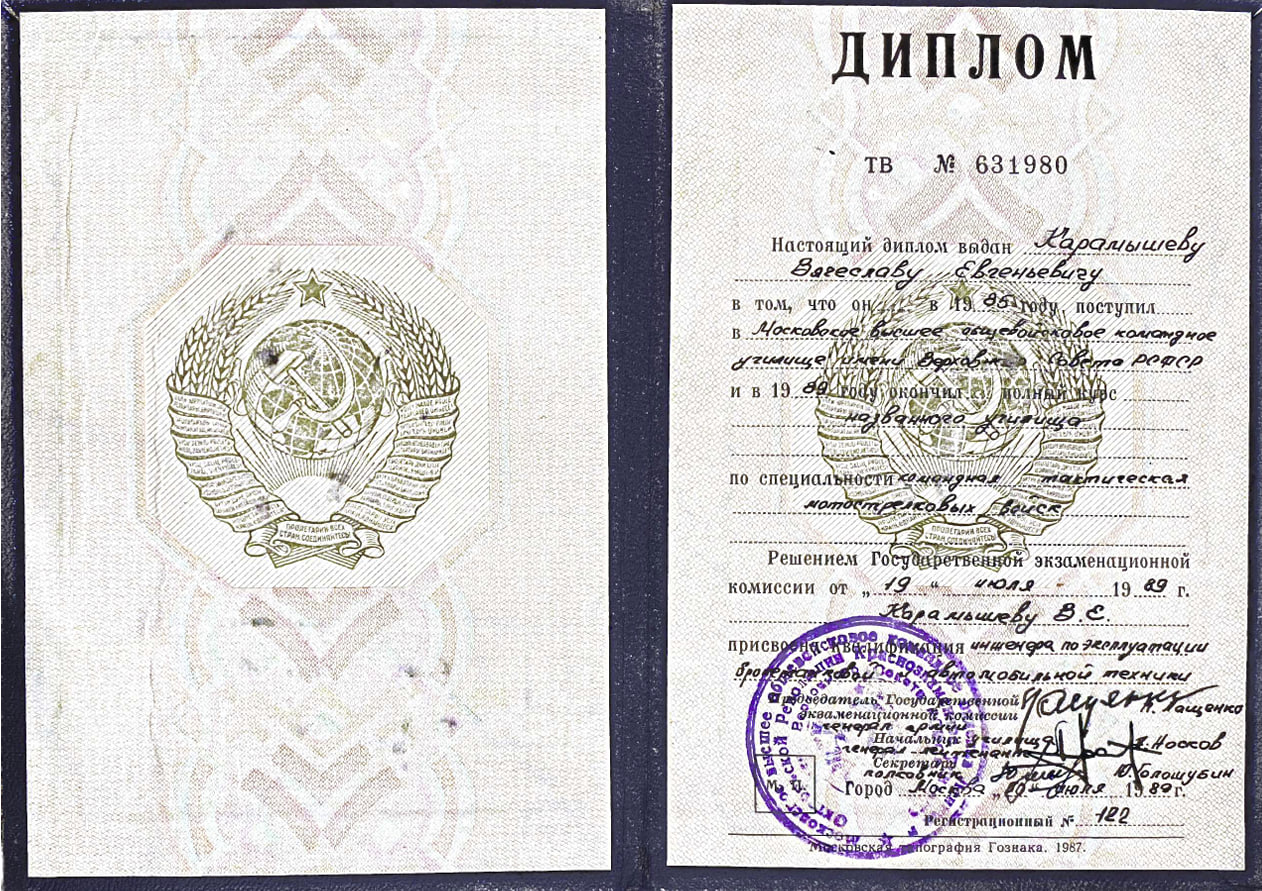 ПРОЛЕТАРИИ ВСЕХ
СТРАН, СОЕДИНЯЙТЕСЬ!
ДИПЛОМ
ТВ № 631980
Настоящий диплом выдан Карамышеву
Вячеславу Евгеньевичу
в том, что он в 1985 году поступил
в Московское высшее общевойсковое командное
училище имени Верховного Совета РСФСР
и в 1989 году окончил полный курс
названного училища
по специальности командная тактическая
мотострелковых войск
Решением Государственной экзаменационной
комиссии от „19“ июля 1989 г.
Карамышеву В.Е.
присвоена квалификация инженера по эксплуатации
бронетанковой и автомобильной техники
Председатель Государственной
экзаменационной комиссии
генерал армии
Начальник училища
генерал-лейтенант И. Носков
Секретарь
полковник Ю. Голошубин
М. П. Город Москва „20“ июля 1989 г.
Регистрационный № 122
Московская типография Гознака. 1987.